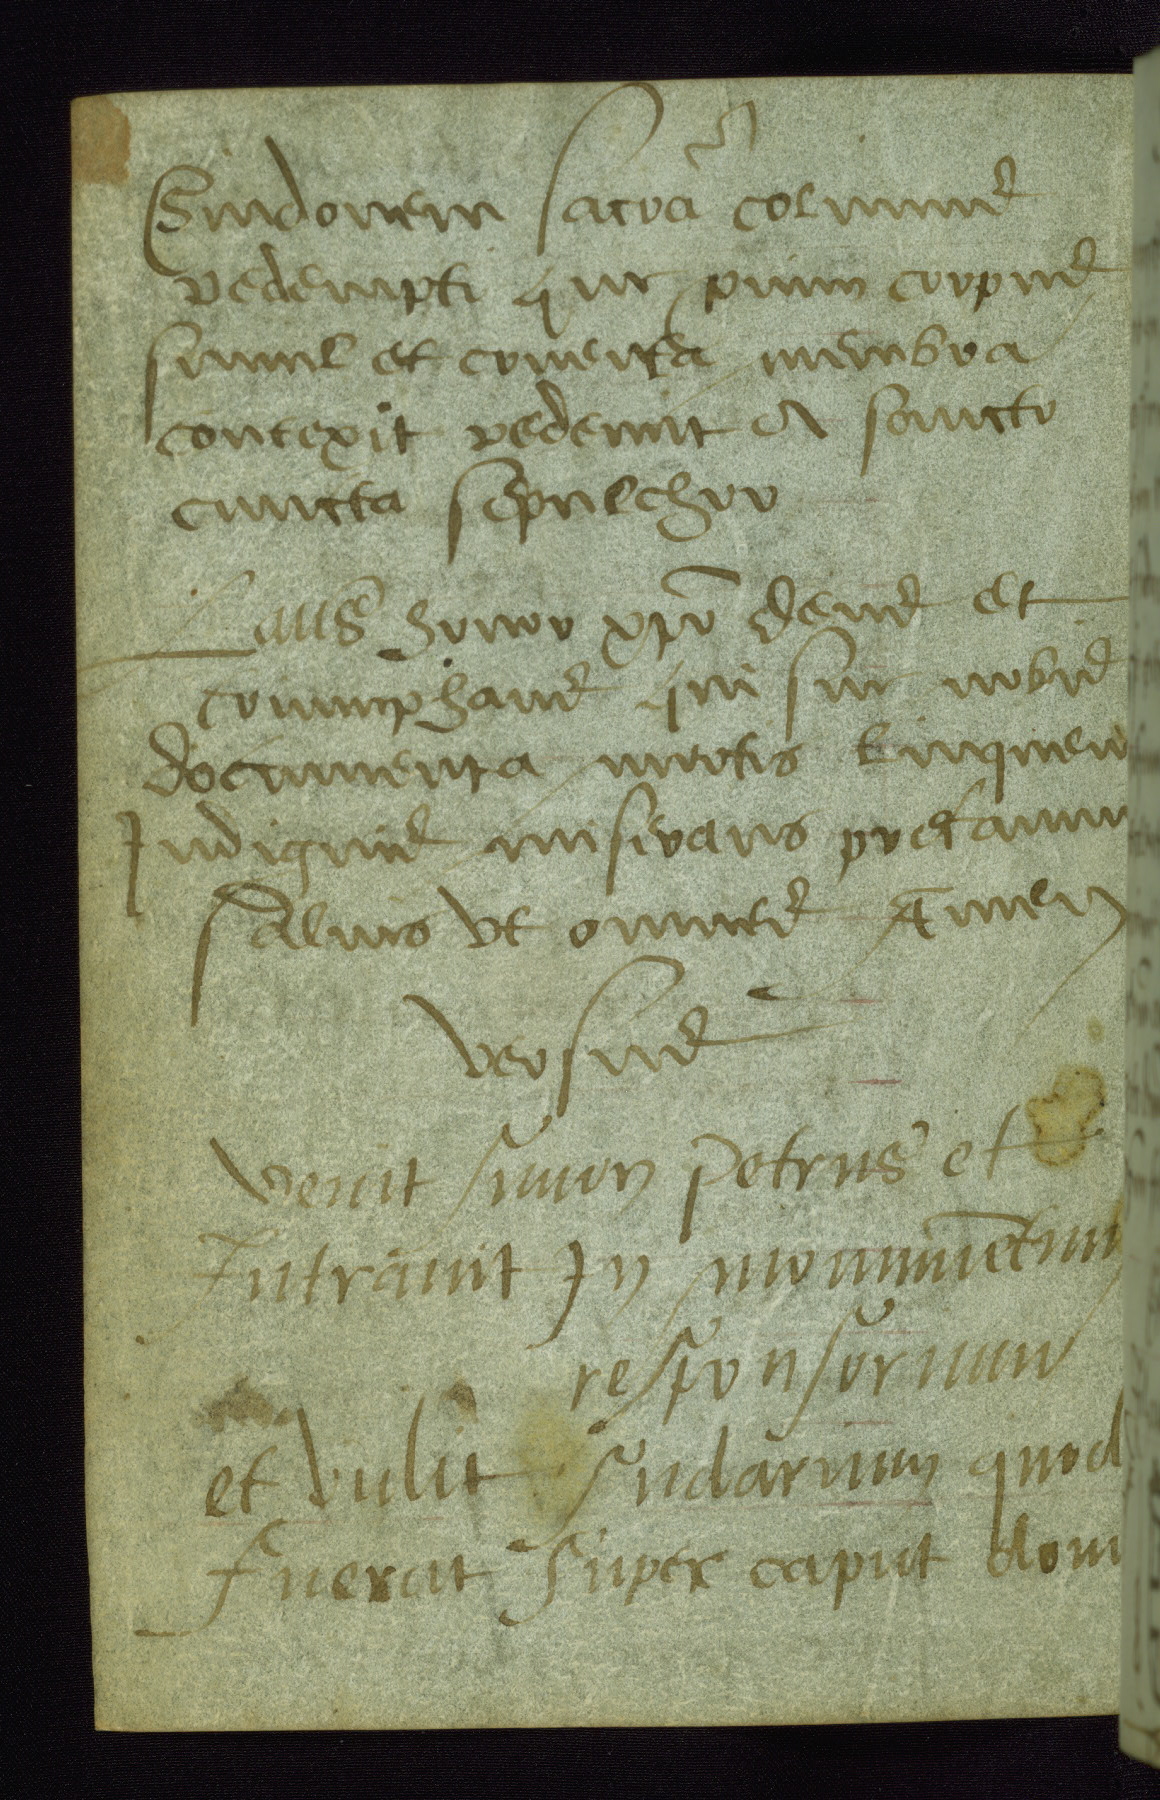 Sindonem sacrā colimus
redempti que pium corpus
simul et cruenta membra
contexit redemit et sancto
cuncta sepulchro
Laus honor xp̄o deus et
triumphans qui sue nobis
documenta mortis linquens
Indignus miseraris prestamur
saluis ut omnes Amen
versus
Venit simon petrus et
Intrauit In monumētum
responsorium
et vidit sudarium quod
fuerat super caput dom